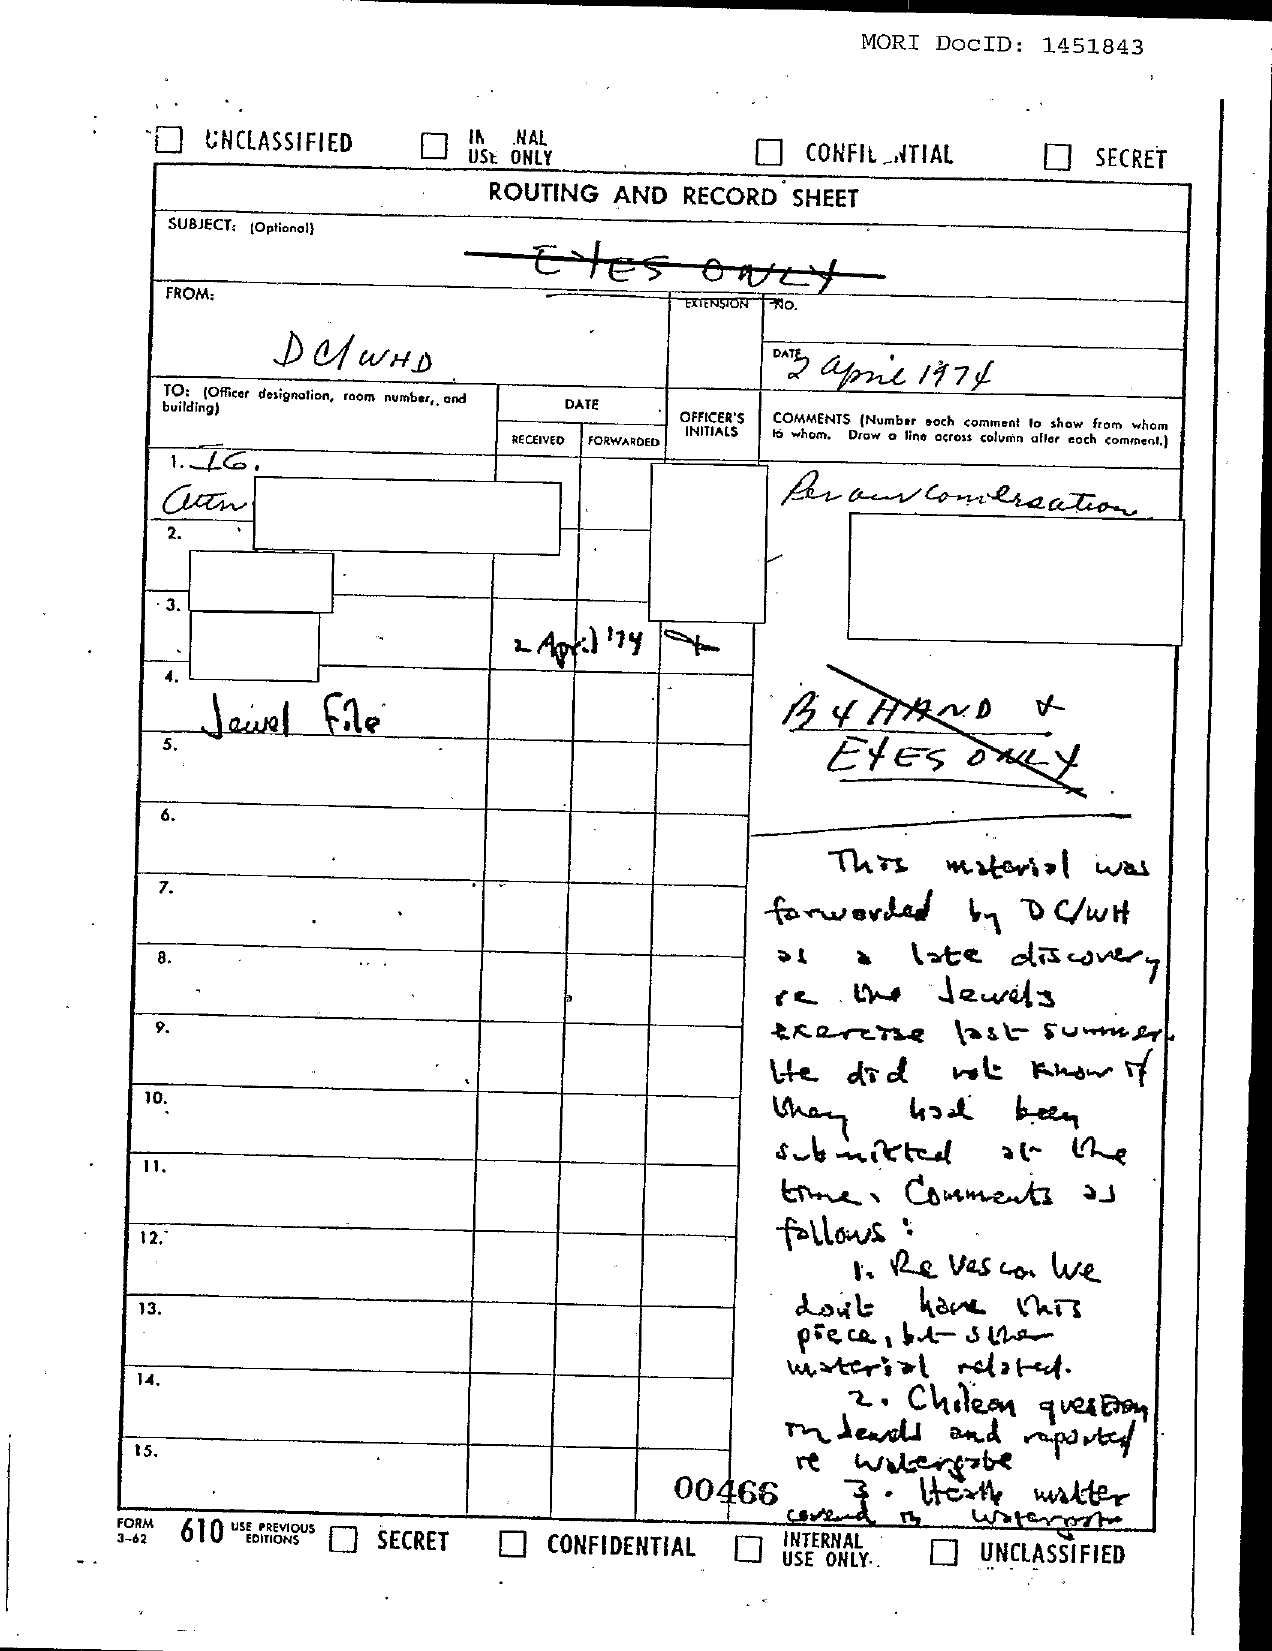 MORI DocID: 1451843
UNCLASSIFIED
USE ONLY
SECRET
ROUTING AND RECORD SHEET
SUBJECT: (Optional)
EYES ONLY
FROM:
EXTENSION
NO.
DC/WHD
DATE
2 April 1974
TO: (Officer designation, room number, and
building)
DATE
RECEIVED
FORWARDED
OFFICER'S
INITIALS
COMMENTS (Number each comment to show from whom
to whom. Draw a line across column after each comment.)
1. IG.
Attn
Per our conversation
2.
3.
2 April '74
4.
Jewel File
BY HAND &
EYES ONLY
5.
6.
7.
8.
9.
10.
11.
12.
13.
14.
15.
This material was
forwarded by DC/WH
as a late discovery
re the Jewels
exercise last summer.
He did not know if
they had been
submitted at the
time. Comments as
follows:
1. Re Vesco. We
don't have this
piece, but other
material related.
2. Chilean question
in Jewels and reported
re Watergate
3. Heath matter
covered in Watergate
00466
FORM
3-62
610
USE PREVIOUS
EDITIONS
SECRET
CONFIDENTIAL
INTERNAL
USE ONLY
UNCLASSIFIED